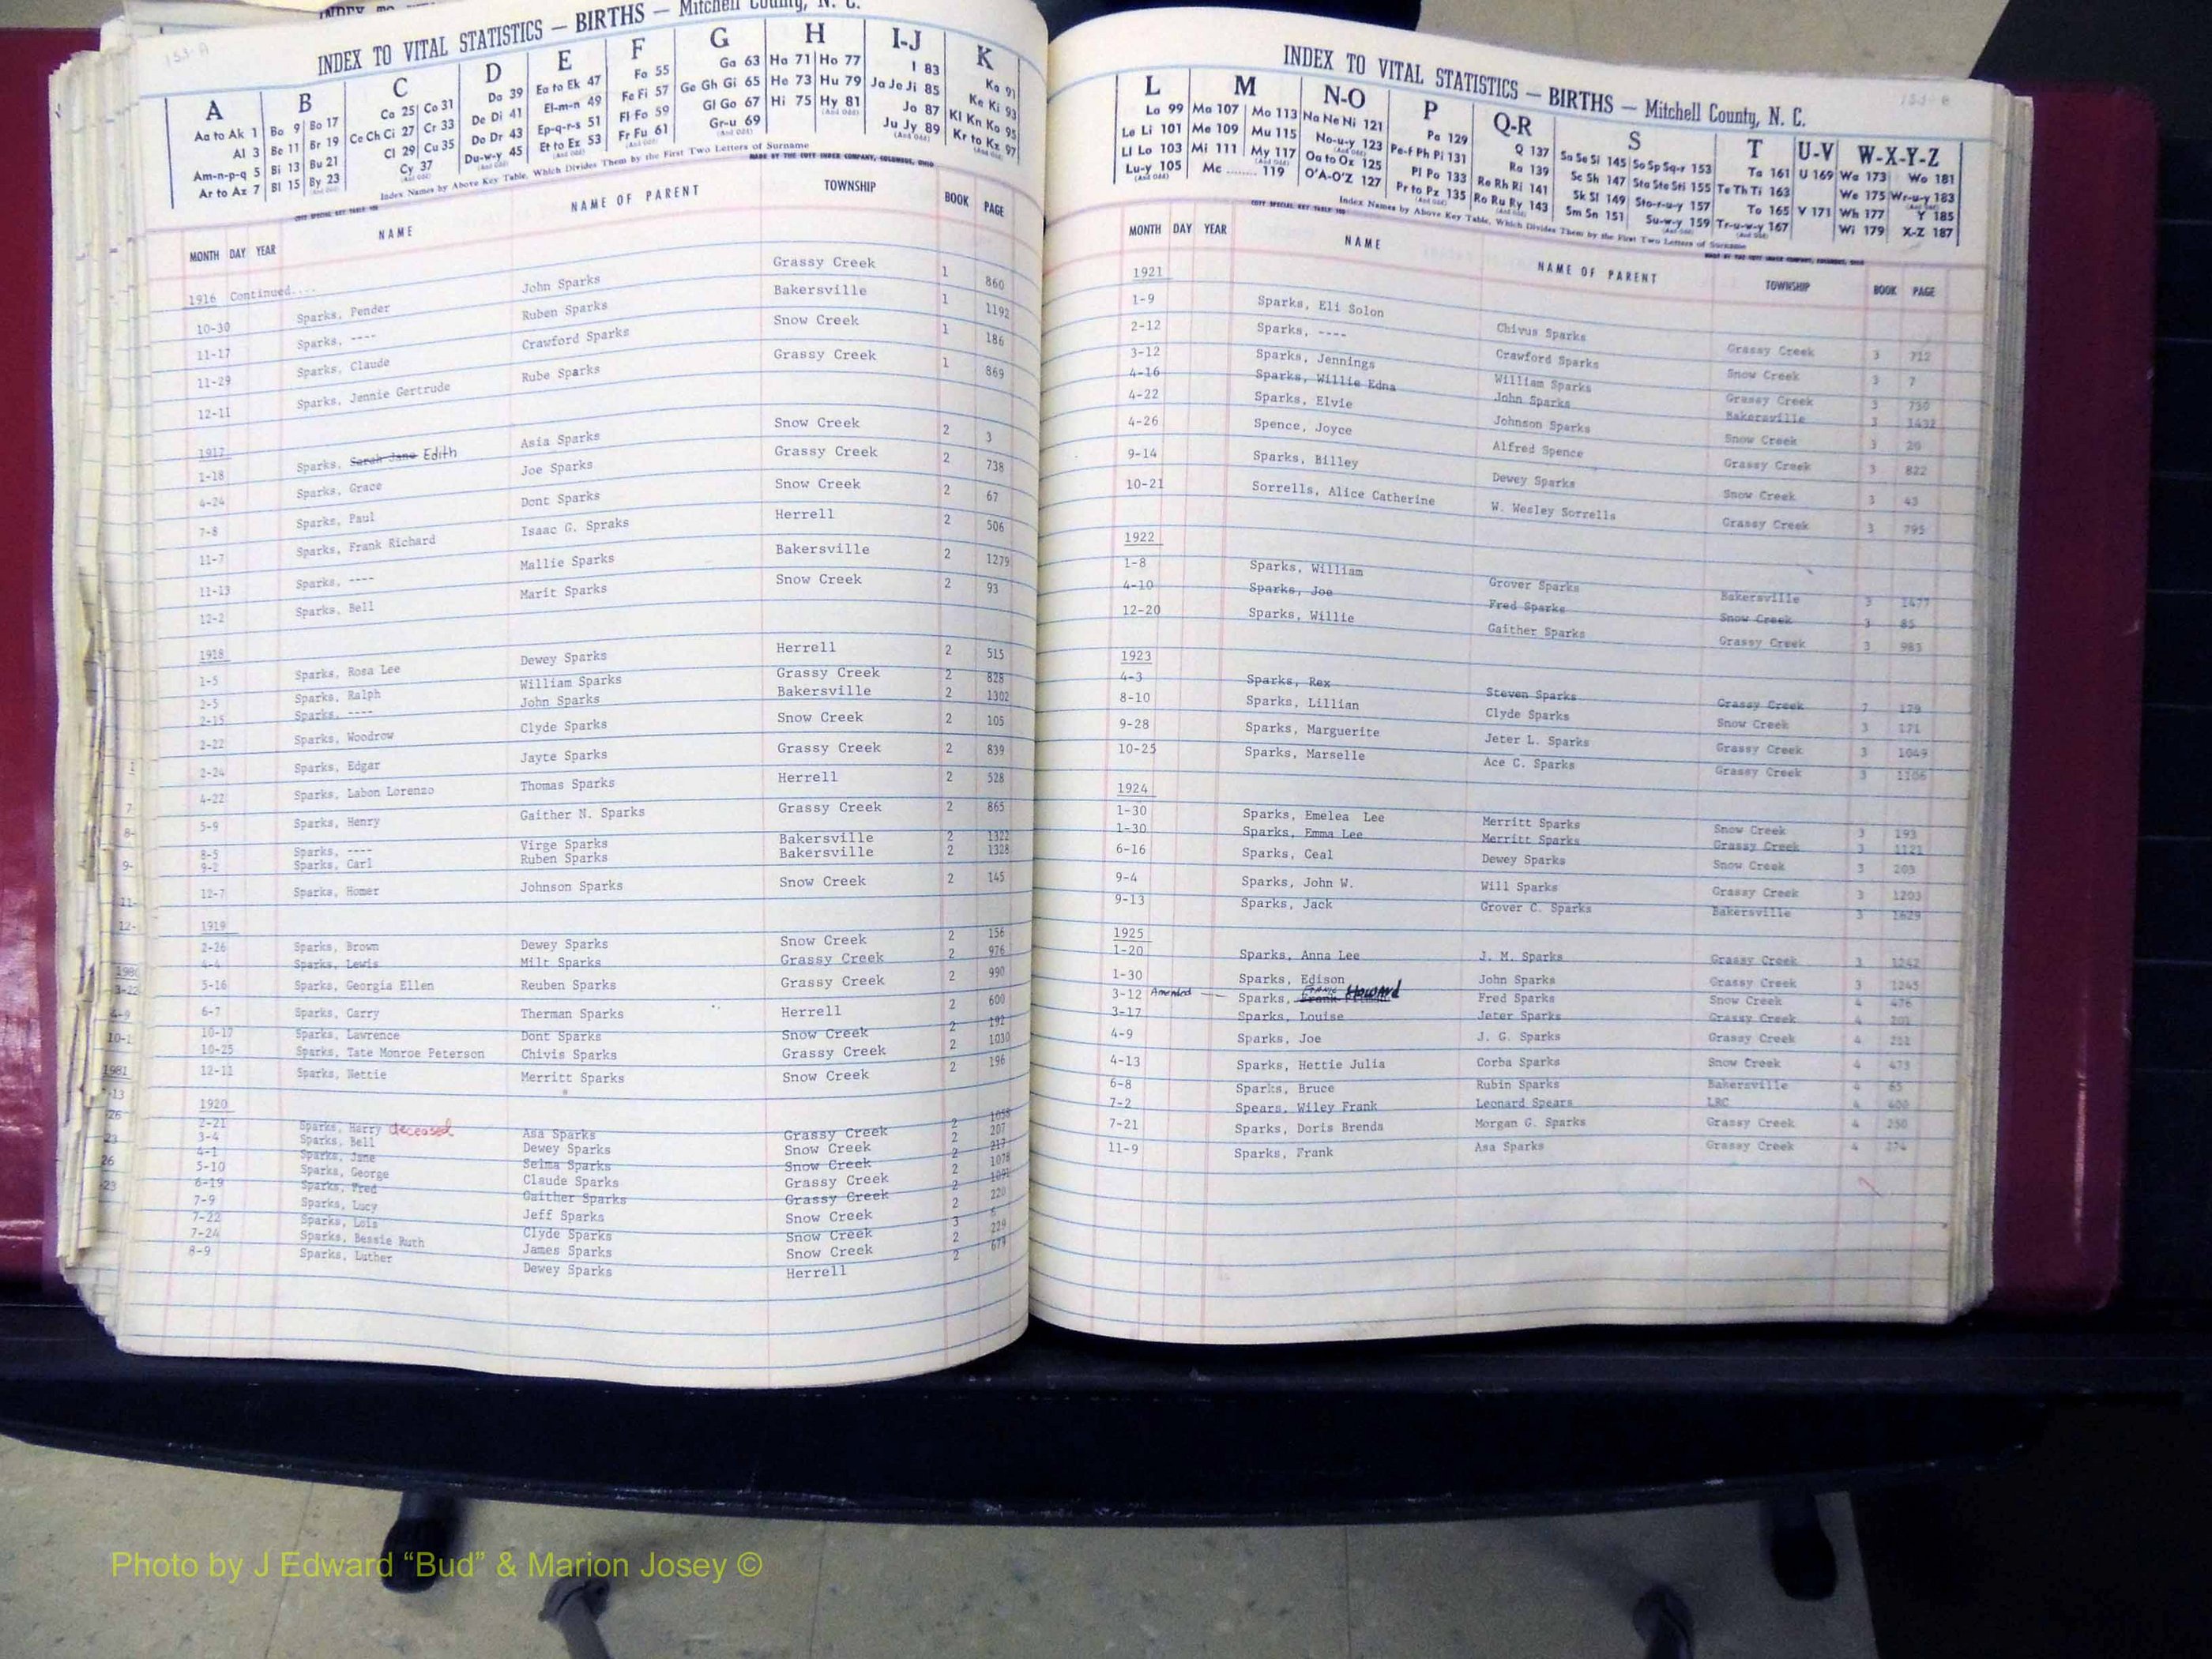 INDEX TO VITAL STATISTICS — BIRTHS — Mitchell County, N. C.
A B C D E F G H I-J K
Aa to Ak 1 Ba 9 Bo 17 Ca 25 Co 31 Da 39 Ea to Ek 47 Fa 55 Ga 63 Ha 71 Ho 77 I 83 Ka 91
Al 3 Be 11 Br 19 Ce Ch Ci 27 Cr 33 De Di 41 El-m-n 49 Fe Fi 57 Ge Gh Gi 65 He 73 Hu 79 Ja Je Ji 85 Ke Ki 93
Am-n-p-q 5 Bi 13 Bu 21 Cl 29 Cu 35 Do Dr 43 Ep-q-r-s 51 Fl Fo 59 Gl Go 67 Hi 75 Hy 81 Jo 87 Kl Kn Ko 95
Ar to Az 7 Bl 15 By 23 Cy 37 Du-w-y 45 Et to Ez 53 Fr Fu 61 Gr-u 69 Ju Jy 89 Kr to Kz 97
Index Names by Above Key Table, Which Divides Them by the First Two Letters of Surname
MADE BY THE COTT INDEX COMPANY, COLUMBUS, OHIO
MONTH DAY YEAR NAME NAME OF PARENT TOWNSHIP BOOK PAGE
1916 Continued....
10-30 Sparks, Pender John Sparks Grassy Creek 1 860
11-17 Sparks, ---- Ruben Sparks Bakersville 1 1192
11-29 Sparks, Claude Crawford Sparks Snow Creek 1 186
12-11 Sparks, Jennie Gertrude Rube Sparks Grassy Creek 1 869
1917
1-18 Sparks, Sarah Jane Edith Asia Sparks Snow Creek 2 3
4-24 Sparks, Grace Joe Sparks Grassy Creek 2 738
7-8 Sparks, Paul Dont Sparks Snow Creek 2 67
11-7 Sparks, Frank Richard Isaac G. Spraks Herrell 2 506
11-13 Sparks, ---- Mallie Sparks Bakersville 2 1279
12-2 Sparks, Bell Marit Sparks Snow Creek 2 93
1918
1-5 Sparks, Rosa Lee Dewey Sparks Herrell 2 515
2-5 Sparks, Ralph William Sparks Grassy Creek 2 828
2-15 Sparks, ---- John Sparks Bakersville 2 1302
2-22 Sparks, Woodrow Clyde Sparks Snow Creek 2 105
2-24 Sparks, Edgar Jayte Sparks Grassy Creek 2 839
4-22 Sparks, Labon Lorenzo Thomas Sparks Herrell 2 528
5-9 Sparks, Henry Gaither N. Sparks Grassy Creek 2 865
8-5 Sparks, ---- Virge Sparks Bakersville 2 1322
9-2 Sparks, Carl Ruben Sparks Bakersville 2 1328
12-7 Sparks, Homer Johnson Sparks Snow Creek 2 145
1919
2-26 Sparks, Brown Dewey Sparks Snow Creek 2 156
4-4 Sparks, Lewis Milt Sparks Grassy Creek 2 976
5-16 Sparks, Georgia Ellen Reuben Sparks Grassy Creek 2 990
6-7 Sparks, Carry Therman Sparks Herrell 2 600
10-17 Sparks, Lawrence Dont Sparks Snow Creek 2 192
10-25 Sparks, Tate Monroe Peterson Chivis Sparks Grassy Creek 2 1030
12-11 Sparks, Nettie Merritt Sparks Snow Creek 2 196
1920
2-21 Sparks, Harry deceased Asa Sparks Grassy Creek 2 1055
3-4 Sparks, Bell Dewey Sparks Snow Creek 2 207
4-1 Sparks, June Selma Sparks Snow Creek 2 217
5-10 Sparks, George Claude Sparks Grassy Creek 2 1078
6-19 Sparks, Fred Gaither Sparks Grassy Creek 2 1091
7-9 Sparks, Lucy Jeff Sparks Snow Creek 2 220
7-22 Sparks, Lois Clyde Sparks Snow Creek 3 6
7-24 Sparks, Bessie Ruth James Sparks Snow Creek 2 229
8-9 Sparks, Luther Dewey Sparks Herrell 2 679
INDEX TO VITAL STATISTICS — BIRTHS — Mitchell County, N. C.
L M N-O P Q-R S T U-V W-X-Y-Z
La 99 Ma 107 Mo 113 Na Ne Ni 121 Pa 129 Q 137 Sa Se Si 145 So Sp Sq-r 153 Ta 161 U 169 Wa 173 Wo 181
Le Li 101 Me 109 Mu 115 No-u-y 123 Pe-f Ph Pi 131 Ra 139 Sc Sh 147 Sta Ste Sti 155 Te Th Ti 163 We 175 Wr-u-y 183
Ll Lo 103 Mi 111 My 117 Oa to Oz 125 Pl Po 133 Re Rh Ri 141 Sk Sl 149 Sto-r-u-y 157 To 165 V 171 Wh 177 Y 185
Lu-y 105 Mc ........ 119 O'A-O'Z 127 Pr to Pz 135 Ro Ru Ry 143 Sm Sn 151 Su-w-y 159 Tr-u-w-y 167 Wi 179 X-Z 187
Index Names by Above Key Table, Which Divides Them by the First Two Letters of Surname
MONTH DAY YEAR NAME NAME OF PARENT TOWNSHIP BOOK PAGE
1921
1-9 Sparks, Eli Solon Chivus Sparks Grassy Creek 3 712
2-12 Sparks, ---- Crawford Sparks Snow Creek 3 7
3-12 Sparks, Jennings William Sparks Grassy Creek 3 730
4-16 Sparks, Willie Edna John Sparks Bakersville 3 1432
4-22 Sparks, Elvie Johnson Sparks Snow Creek 3 20
4-26 Spence, Joyce Alfred Spence Grassy Creek 3 822
9-14 Sparks, Billey Dewey Sparks Snow Creek 3 43
10-21 Sorrells, Alice Catherine W. Wesley Sorrells Grassy Creek 3 795
1922
1-8 Sparks, William Grover Sparks Bakersville 3 1477
4-10 Sparks, Joe Fred Sparks Snow Creek 3 85
12-20 Sparks, Willie Gaither Sparks Grassy Creek 3 983
1923
4-3 Sparks, Rex Steven Sparks Grassy Creek 7 179
8-10 Sparks, Lillian Clyde Sparks Snow Creek 3 171
9-28 Sparks, Marguerite Jeter L. Sparks Grassy Creek 3 1049
10-25 Sparks, Marselle Ace C. Sparks Grassy Creek 3 1106
1924
1-30 Sparks, Emelea Lee Merritt Sparks Snow Creek 3 193
1-30 Sparks, Emma Lee Merritt Sparks Grassy Creek 3 1121
6-16 Sparks, Ceal Dewey Sparks Snow Creek 3 203
9-4 Sparks, John W. Will Sparks Grassy Creek 3 1203
9-13 Sparks, Jack Grover C. Sparks Bakersville 3 1629
1925
1-20 Sparks, Anna Lee J. M. Sparks Grassy Creek 3 1242
1-30 Sparks, Edison John Sparks Grassy Creek 3 1245
3-12 Amended Sparks, Frank Howard Fred Sparks Snow Creek 4 476
3-17 Sparks, Louise Jeter Sparks Grassy Creek 4 201
4-9 Sparks, Joe J. G. Sparks Grassy Creek 4 212
4-13 Sparks, Hettie Julia Corba Sparks Snow Creek 4 473
6-8 Sparks, Bruce Rubin Sparks Bakersville 4 65
7-2 Spears, Wiley Frank Leonard Spears LRC 4 600
7-21 Sparks, Doris Brenda Morgan G. Sparks Grassy Creek 4 250
11-9 Sparks, Frank Asa Sparks Grassy Creek 4 274
Photo by J Edward “Bud” & Marion Josey ©